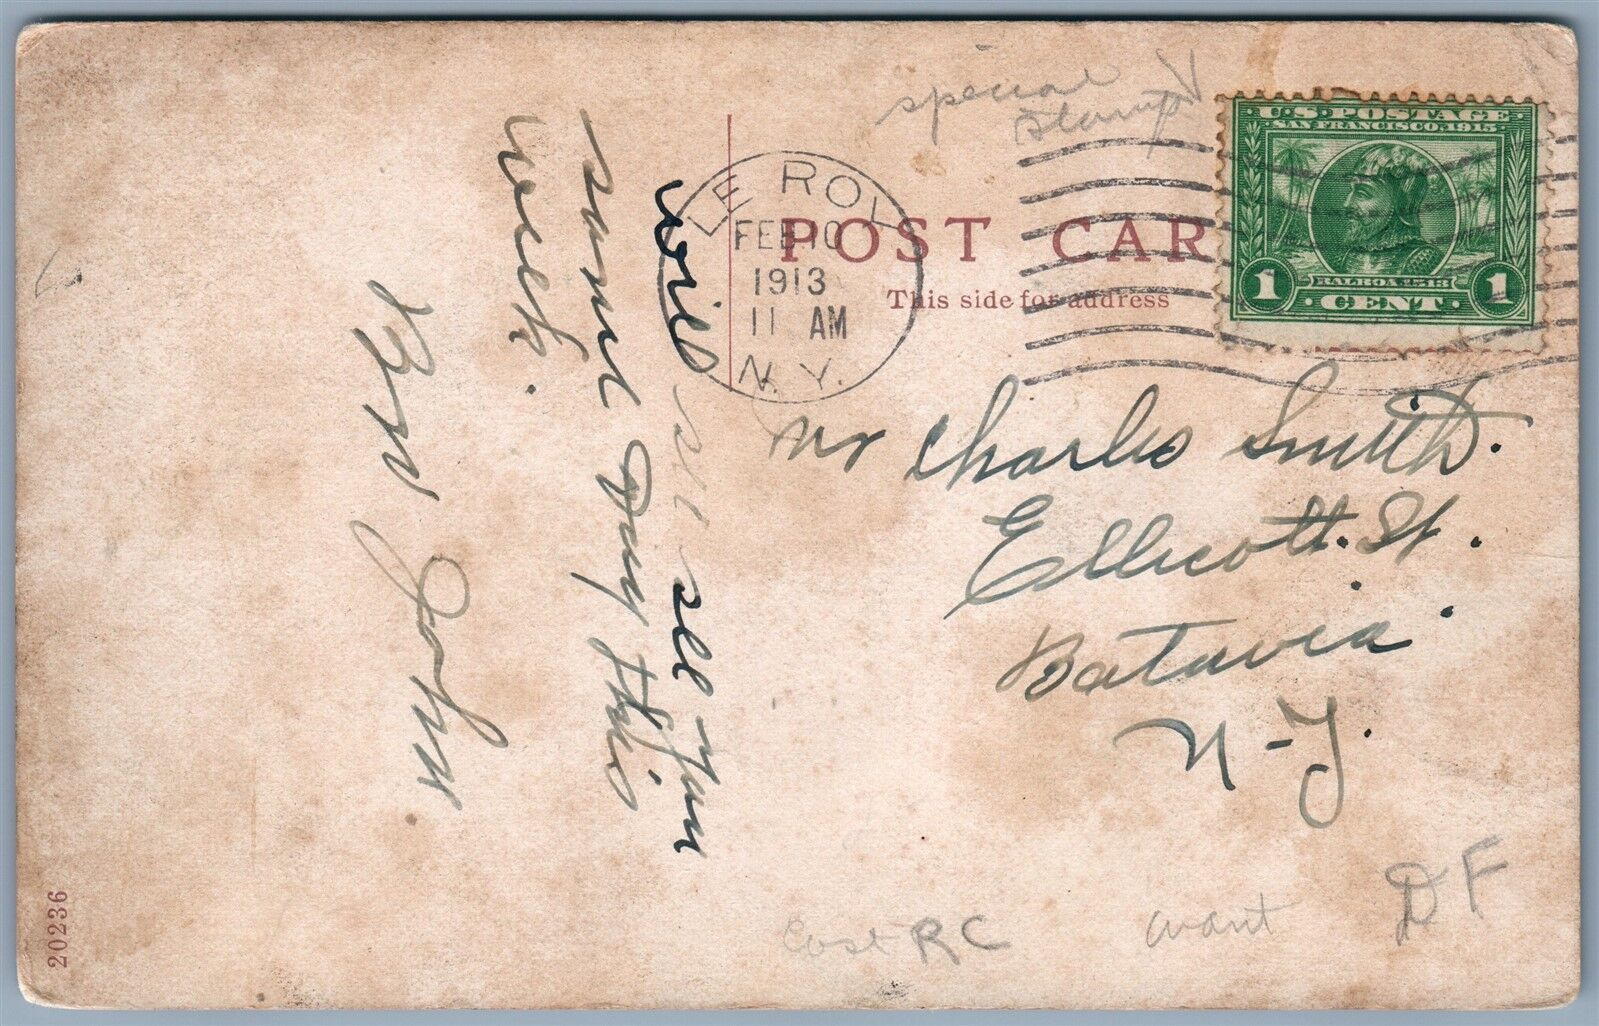 special
stamp
U.S. POSTAGE
SAN FRANCISCO, 1915
BALBOA 1513
1 CENT 1
LE ROY
FEB 10
1913
11 AM
N.Y.
POST CAR
This side for address
Mr Charles Smith.
Ellicott. St.
Batavia.
N-Y.
will see you
some Day this
week.
Bro John
20236
Cost RC
want
DF